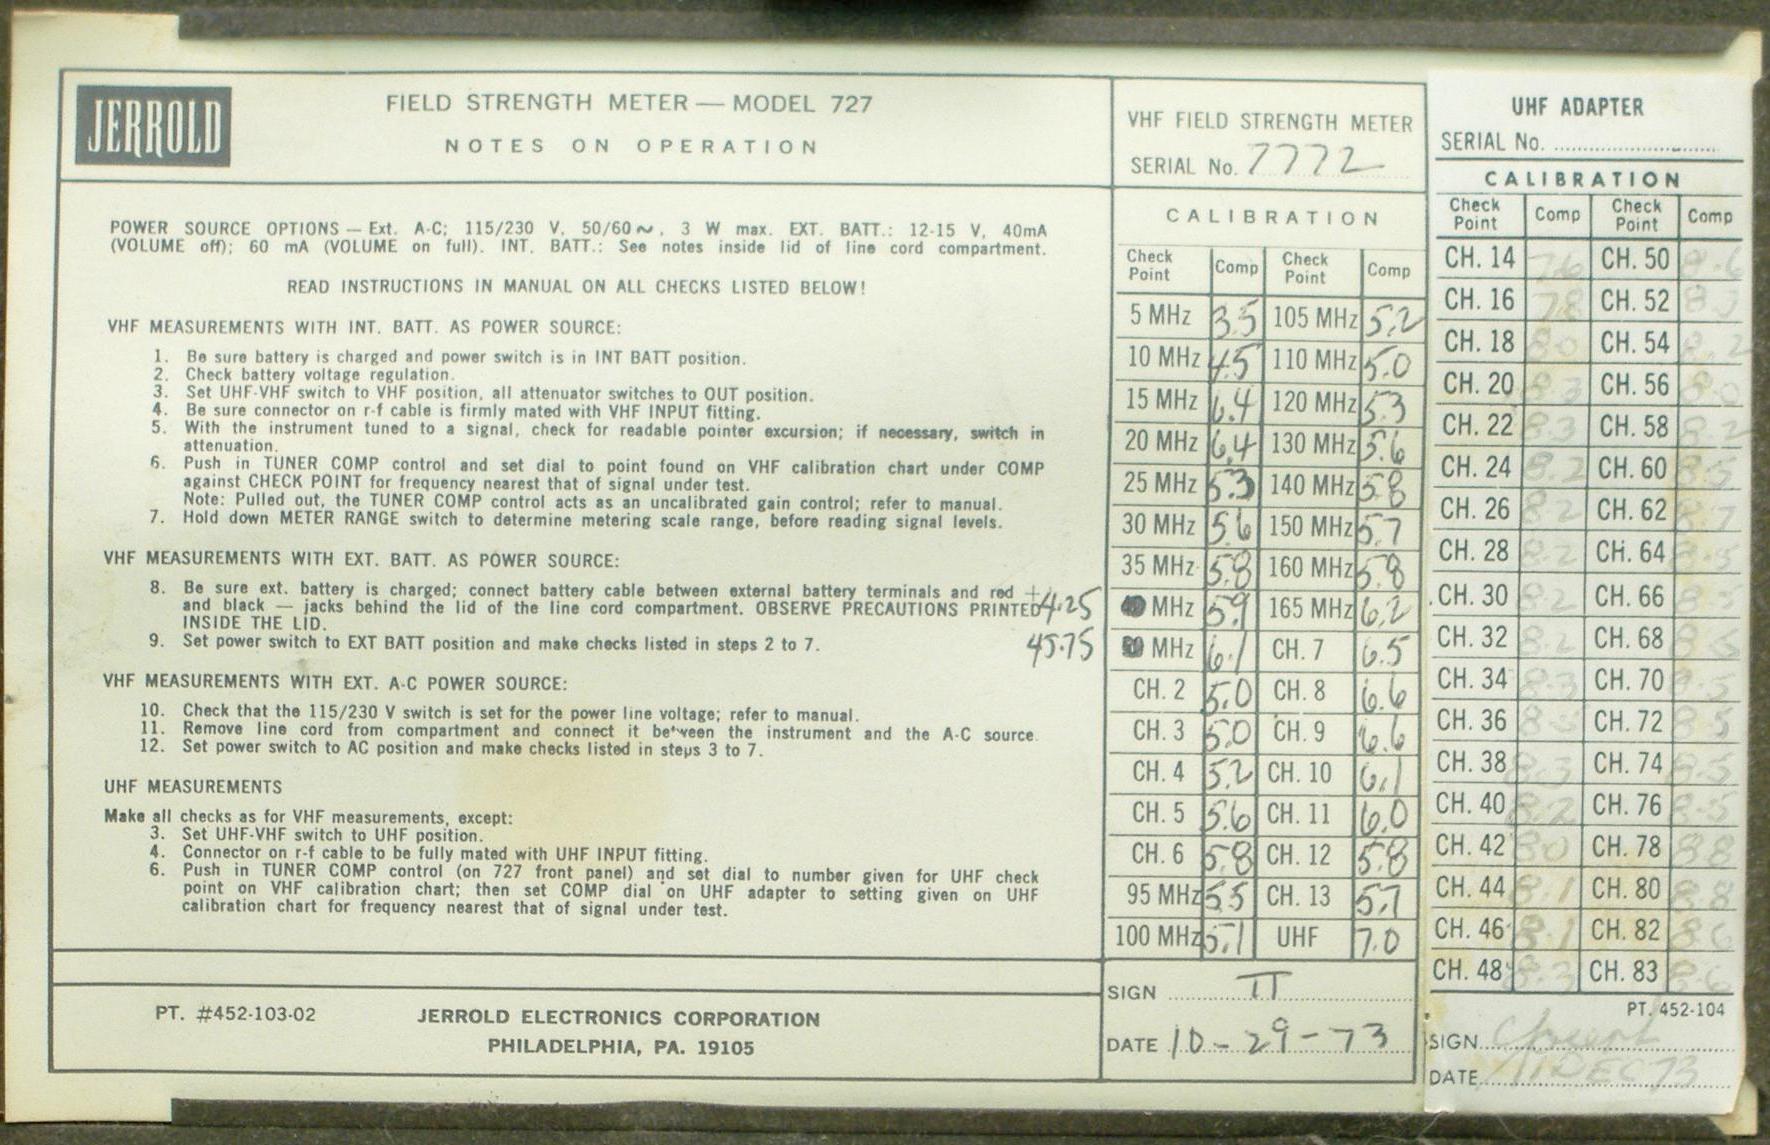 JERROLD
FIELD STRENGTH METER — MODEL 727
NOTES ON OPERATION
POWER SOURCE OPTIONS — Ext. A-C; 115/230 V, 50/60 ~, 3 W max. EXT. BATT.: 12-15 V, 40mA
(VOLUME off); 60 mA (VOLUME on full). INT. BATT.: See notes inside lid of line cord compartment.
READ INSTRUCTIONS IN MANUAL ON ALL CHECKS LISTED BELOW!
VHF MEASUREMENTS WITH INT. BATT. AS POWER SOURCE:
1. Be sure battery is charged and power switch is in INT BATT position.
2. Check battery voltage regulation.
3. Set UHF-VHF switch to VHF position, all attenuator switches to OUT position.
4. Be sure connector on r-f cable is firmly mated with VHF INPUT fitting.
5. With the instrument tuned to a signal, check for readable pointer excursion; if necessary, switch in
attenuation.
6. Push in TUNER COMP control and set dial to point found on VHF calibration chart under COMP
against CHECK POINT for frequency nearest that of signal under test.
Note: Pulled out, the TUNER COMP control acts as an uncalibrated gain control; refer to manual.
7. Hold down METER RANGE switch to determine metering scale range, before reading signal levels.
VHF MEASUREMENTS WITH EXT. BATT. AS POWER SOURCE:
8. Be sure ext. battery is charged; connect battery cable between external battery terminals and red +
and black — jacks behind the lid of the line cord compartment. OBSERVE PRECAUTIONS PRINTED 4.25
INSIDE THE LID.
9. Set power switch to EXT BATT position and make checks listed in steps 2 to 7. 45.75
VHF MEASUREMENTS WITH EXT. A-C POWER SOURCE:
10. Check that the 115/230 V switch is set for the power line voltage; refer to manual.
11. Remove line cord from compartment and connect it between the instrument and the A-C source.
12. Set power switch to AC position and make checks listed in steps 3 to 7.
UHF MEASUREMENTS
Make all checks as for VHF measurements, except:
3. Set UHF-VHF switch to UHF position.
4. Connector on r-f cable to be fully mated with UHF INPUT fitting.
6. Push in TUNER COMP control (on 727 front panel) and set dial to number given for UHF check
point on VHF calibration chart; then set COMP dial on UHF adapter to setting given on UHF
calibration chart for frequency nearest that of signal under test.
PT. #452-103-02
JERROLD ELECTRONICS CORPORATION
PHILADELPHIA, PA. 19105
VHF FIELD STRENGTH METER
SERIAL No. 7772
CALIBRATION
Check Point Comp Check Point Comp
5 MHz 3.5 105 MHz 5.2
10 MHz 4.5 110 MHz 5.0
15 MHz 6.4 120 MHz 5.3
20 MHz 6.4 130 MHz 5.6
25 MHz 5.3 140 MHz 5.8
30 MHz 5.6 150 MHz 5.7
35 MHz 5.8 160 MHz 5.8
MHz 5.9 165 MHz 6.2
MHz 6.1 CH. 7 6.5
CH. 2 5.0 CH. 8 6.6
CH. 3 5.0 CH. 9 6.6
CH. 4 5.2 CH. 10 6.1
CH. 5 5.6 CH. 11 6.0
CH. 6 5.8 CH. 12 5.8
95 MHz 5.5 CH. 13 5.7
100 MHz 5.1 UHF 7.0
SIGN
DATE 10-29-73
UHF ADAPTER
SERIAL No.
CALIBRATION
Check Point Comp Check Point Comp
CH. 14 7.6 CH. 50 8.6
CH. 16 7.8 CH. 52
CH. 18 8.0 CH. 54 8.2
CH. 20 8.3 CH. 56 8.0
CH. 22 8.3 CH. 58 8.2
CH. 24 8.2 CH. 60 8.5
CH. 26 8.2 CH. 62 8.7
CH. 28 8.2 CH. 64 8.5
CH. 30 8.2 CH. 66 8.5
CH. 32 8.2 CH. 68
CH. 34 8.3 CH. 70 8.5
CH. 36 CH. 72 8.5
CH. 38 8.3 CH. 74 8.5
CH. 40 8.2 CH. 76 8.5
CH. 42 8.0 CH. 78 8.8
CH. 44 8.1 CH. 80 8.8
CH. 46 8.1 CH. 82 8.6
CH. 48 8.3 CH. 83 8.6
PT. 452-104
SIGN
DATE 11 DEC 73